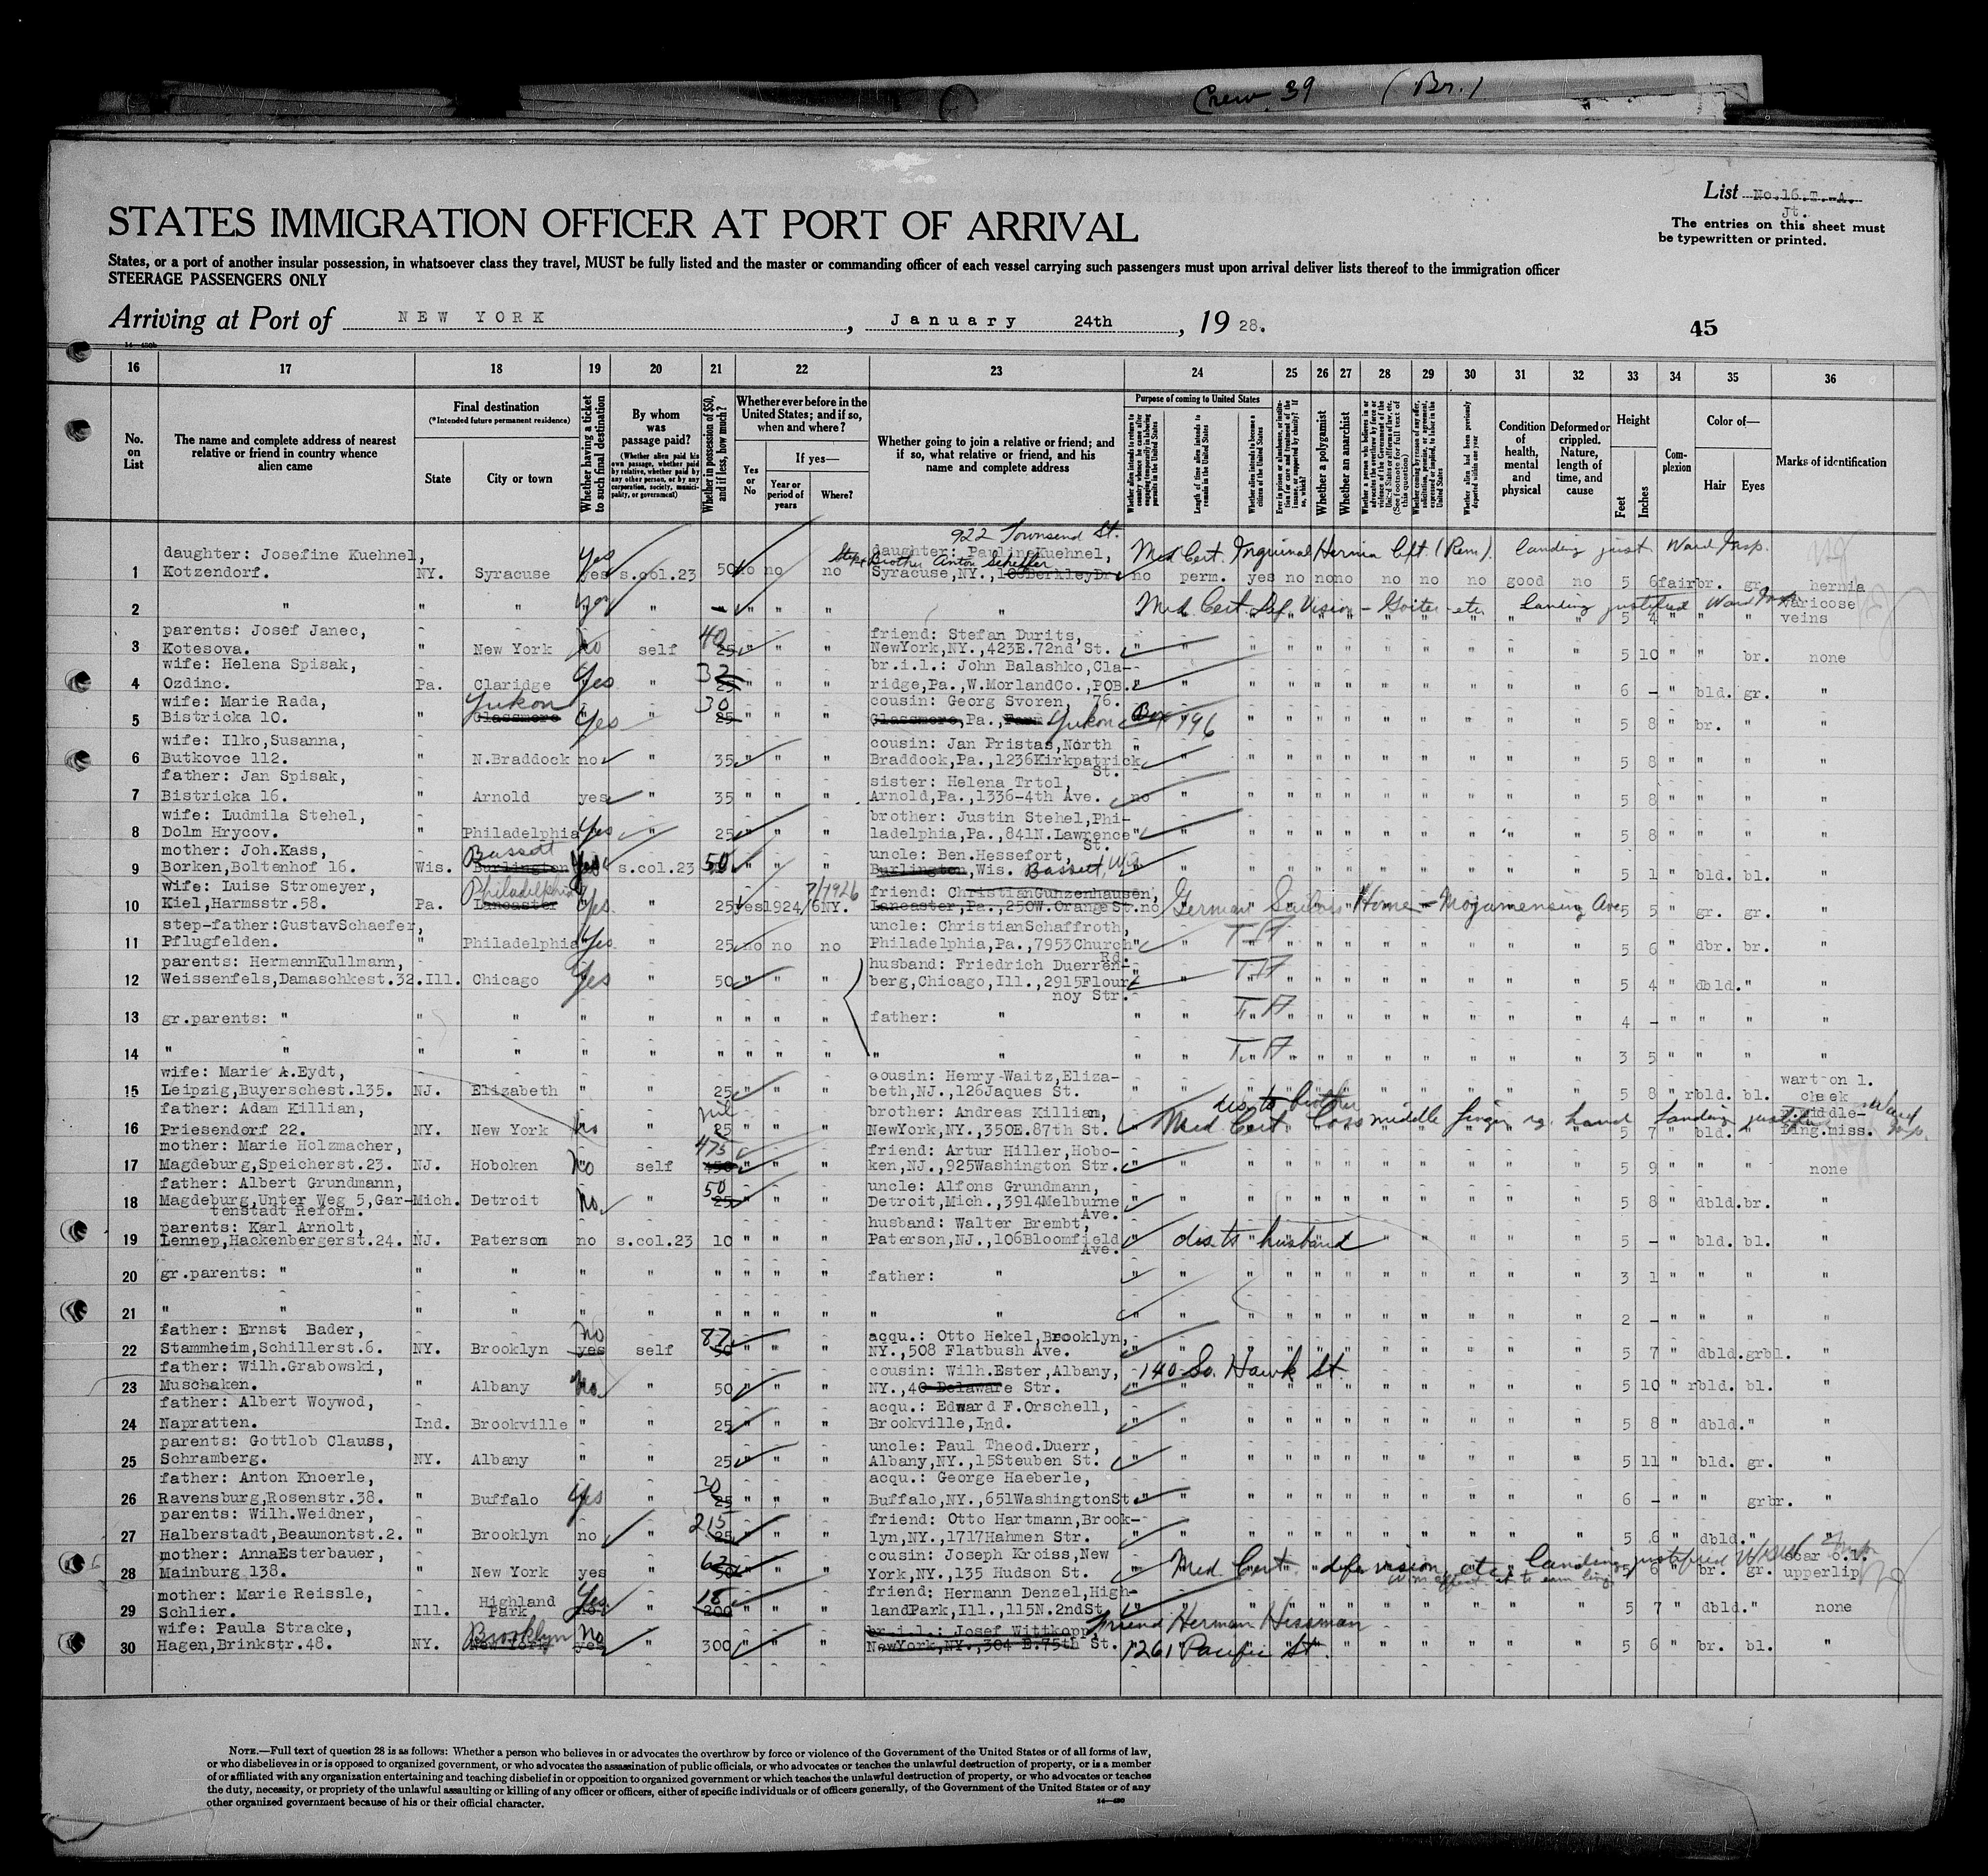 Crew 39 (Br.)
List No.16.T.-A.
Jt.
The entries on this sheet must
be typewritten or printed.
STATES IMMIGRATION OFFICER AT PORT OF ARRIVAL
States, or a port of another insular possession, in whatsoever class they travel, MUST be fully listed and the master or commanding officer of each vessel carrying such passengers must upon arrival deliver lists thereof to the immigration officer
STEERAGE PASSENGERS ONLY
Arriving at Port of NEW YORK, January 24th, 1928.
45
16 17 18 19 20 21 22 23 24 25 26 27 28 29 30 31 32 33 34 35 36
No. on List
The name and complete address of nearest relative or friend in country whence alien came
Final destination
(*Intended future permanent residence)
State
City or town
Whether having a ticket to such final destination
By whom was passage paid?
(Whether alien paid his own passage, whether paid by relative, whether paid by any other person, or by any corporation, society, municipality, or government)
Whether in possession of $50, and if less, how much?
Whether ever before in the United States; and if so, when and where?
Yes or No
If yes—
Year or period of years
Where?
Whether going to join a relative or friend; and if so, what relative or friend, and his name and complete address
Purpose of coming to United States
Length of time alien intends to remain in the United States
Whether alien intends to become a citizen of the United States
Whether a polygamist
Whether an anarchist
Condition of health, mental and physical
Deformed or crippled. Nature, length of time, and cause
Height
Feet
Inches
Complexion
Color of—
Hair
Eyes
Marks of identification
922 Townsend St.
1 daughter: Josefine Kuehnel, Kotzendorf. NY. Syracuse yes s.col.23 50 no no no daughter: Pauline Kuehnel, Syracuse,NY.,100BerkleyDr. no perm. yes no no no no no no good no 5 6 fair br. gr. hernia
Brother Anton Scheffler
Med Cert. Inguinal Hernia left. (Rem). landing just. Ward Insp.
2 " " " yes " - " " " " Med Cert. Def. Vision - Goiter etc landing justified 5 4 " " " varicose veins
3 parents: Josef Janec, Kotesova. " New York no self 40 25 " " " friend: Stefan Durits, NewYork,NY.,423E.72nd St. 5 10 " " br. none
4 wife: Helena Spisak, Ozdinc. Pa. Claridge Yes " 32 25 " " " br.i.l.: John Balashko,Claridge,Pa.,W.MorlandCo.,POB. 76. 6 - " bld. gr. "
5 wife: Marie Rada, Bistricka 10. " Glassmere Yukon Yes " 30 25 " " " cousin: Georg Svoren, Glassmere,Pa., Yukon Box 196 5 8 " br. " "
6 wife: Ilko,Susanna, Butkovce 112. " N.Braddock no " 35 " " " cousin: Jan Pristas,North Braddock,Pa.,1236Kirkpatrick St. 5 8 " " " "
7 father: Jan Spisak, Bistricka 16. " Arnold yes " 35 " " " sister: Helena Trtol, Arnold,Pa.,1336-4th Ave. no 5 8 " " " "
8 wife: Ludmila Stehel, Dolm Hrycov. " Philadelphia Yes " 25 " " " brother: Justin Stehel,Philadelphia,Pa.,841N.Lawrence St. 5 8 " " " "
9 mother: Joh.Kass, Borken,Boltenhof 16. Wis. Burlington Bassett Yes s.col.23 50 " " " uncle: Ben.Hessefort, Burlington,Wis. Bassett, Wis 5 1 " bld. bl. "
10 wife: Luise Stromeyer, Kiel,Harmsstr.58. Pa. Lancaster Philadelphia Yes " 25 yes 1924/6 NY. 7/1926 friend: ChristianGunzenhausen, Lancaster,Pa.,250W.OrangeSt. no German Sailors Home - Moyamensing Ave 5 5 " gr. gr. "
11 step-father:GustavSchaefer, Pflugfelden. " Philadelphia Yes " 25 no no no uncle: ChristianSchaffroth, Philadelphia,Pa.,7953Church Rd. 5 6 " dbr. br. "
12 parents: HermannKullmann, Weissenfels,Damaschkest.32. Ill. Chicago Yes " 50 " " " husband: Friedrich Duerrenberg,Chicago,Ill.,2915Flournoy Str. 5 4 " dbld. " "
13 gr.parents: " " " " " " " " " father: " 4 - " " " "
14 " " " " " " " " " " " " 3 5 " " " "
15 wife: Marie A.Eydt, Leipzig,Buyerschest.135. NJ. Elizabeth " " 25 " " " cousin: Henry Waitz,Elizabeth,NJ.,126Jaques St. 5 8 " rbld. bl. wart on l. cheek
16 father: Adam Killian, Priesendorf 22. NY. New York no " nil 25 " " " brother: Andreas Killian, NewYork,NY.,350E.87th St. dis. to brother Med Cert Loss middle finger rg. hand landing justified Ward Insp. 5 7 " bld. " middle-fing.miss.
17 mother: Marie Holzmacher, Magdeburg,Speicherst.23. NJ. Hoboken No self 475 450 " " " friend: Artur Hiller,Hoboken,NJ.,925Washington Str. 5 9 " " " none
18 father: Albert Grundmann, Magdeburg,Unter Weg 5,Gartenstadt Reform. Mich. Detroit No " 50 25 " " " uncle: Alfons Grundmann, Detroit,Mich.,3914Melburne Ave. 5 8 " dbld. br. "
19 parents: Karl Arnolt, Lennep,Hackenbergerst.24. NJ. Paterson no s.col.23 10 " " " husband: Walter Brembt, Paterson,NJ.,106Bloomfield Ave. dis. to husband 5 - " bld. bl. "
20 gr.parents: " " " " " " " " " father: " 3 1 " " " "
21 " " " " " " " " " " " " 2 - " " " "
22 father: Ernst Bader, Stammheim,Schillerst.6. NY. Brooklyn yes no self 87 50 " " " acqu.: Otto Hekel,Brooklyn, NY.,508 Flatbush Ave. 5 7 " dbld. grbl. "
23 father: Wilh.Grabowski, Muschaken. " Albany No " 50 " " " cousin: Wilh.Ester,Albany, NY.,40 Delaware Str. 140 So. Hawk St. 5 10 " rbld. bl. "
24 father: Albert Woywod, Napratten. Ind. Brookville " " 25 " " " acqu.: Edward F.Orschell, Brookville,Ind. 5 8 " dbld. " "
25 parents: Gottlob Clauss, Schramberg. NY. Albany " " 25 " " " uncle: Paul Theod.Duerr, Albany,NY.,15Steuben St. 5 11 " bld. gr. "
26 father: Anton Knoerle, Ravensburg,Rosenstr.38. " Buffalo Yes " 30 25 " " " acqu.: George Haeberle, Buffalo,NY.,651WashingtonSt. 6 - " " grbr. "
27 parents: Wilh.Weidner, Halberstadt,Beaumontst.2. " Brooklyn no " 215 25 " " " friend: Otto Hartmann,Brooklyn,NY.,1717Hahmen Str. 5 6 " dbld. " "
28 mother: AnnaEsterbauer, Mainburg 138. " New York yes " 62 50 " " " cousin: Joseph Kroiss,New York,NY.,135 Hudson St. Med Cert. defe vision etc. landing justified Ward Insp. 5 6 " br. gr. scar o.l. upperlip
29 mother: Marie Reissle, Schlier. Ill. Highland Park Yes " 18 200 " " " friend: Hermann Denzel,HighlandPark,Ill.,115N.2ndSt. 5 7 " dbld. " none
30 wife: Paula Stracke, Hagen,Brinkstr.48. NY. New York Brooklyn yes No " 300 " " " br.i.l.: Josef Wittkopp, NewYork,NY.,304 E.75th St. friend Herman Hissman 1261 Pacific St. 5 6 " br. bl. "
NOTE.—Full text of question 28 is as follows: Whether a person who believes in or advocates the overthrow by force or violence of the Government of the United States or of all forms of law,
or who disbelieves in or is opposed to organized government, or who advocates the assassination of public officials, or who advocates or teaches the unlawful destruction of property, or is a member
of or affiliated with any organization entertaining and teaching disbelief in or opposition to organized government or which teaches the unlawful destruction of property, or who advocates or teaches
the duty, necessity, or propriety of the unlawful assaulting or killing of any officer or officers, either of specific individuals or of officers generally, of the Government of the United States or of any
other organized government because of his or their official character.
14—430